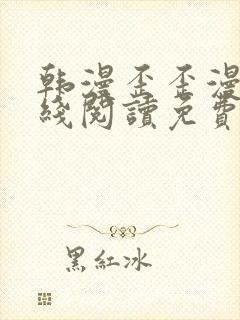 韩漫歪歪漫
綫閱讀免費
黑紅冰